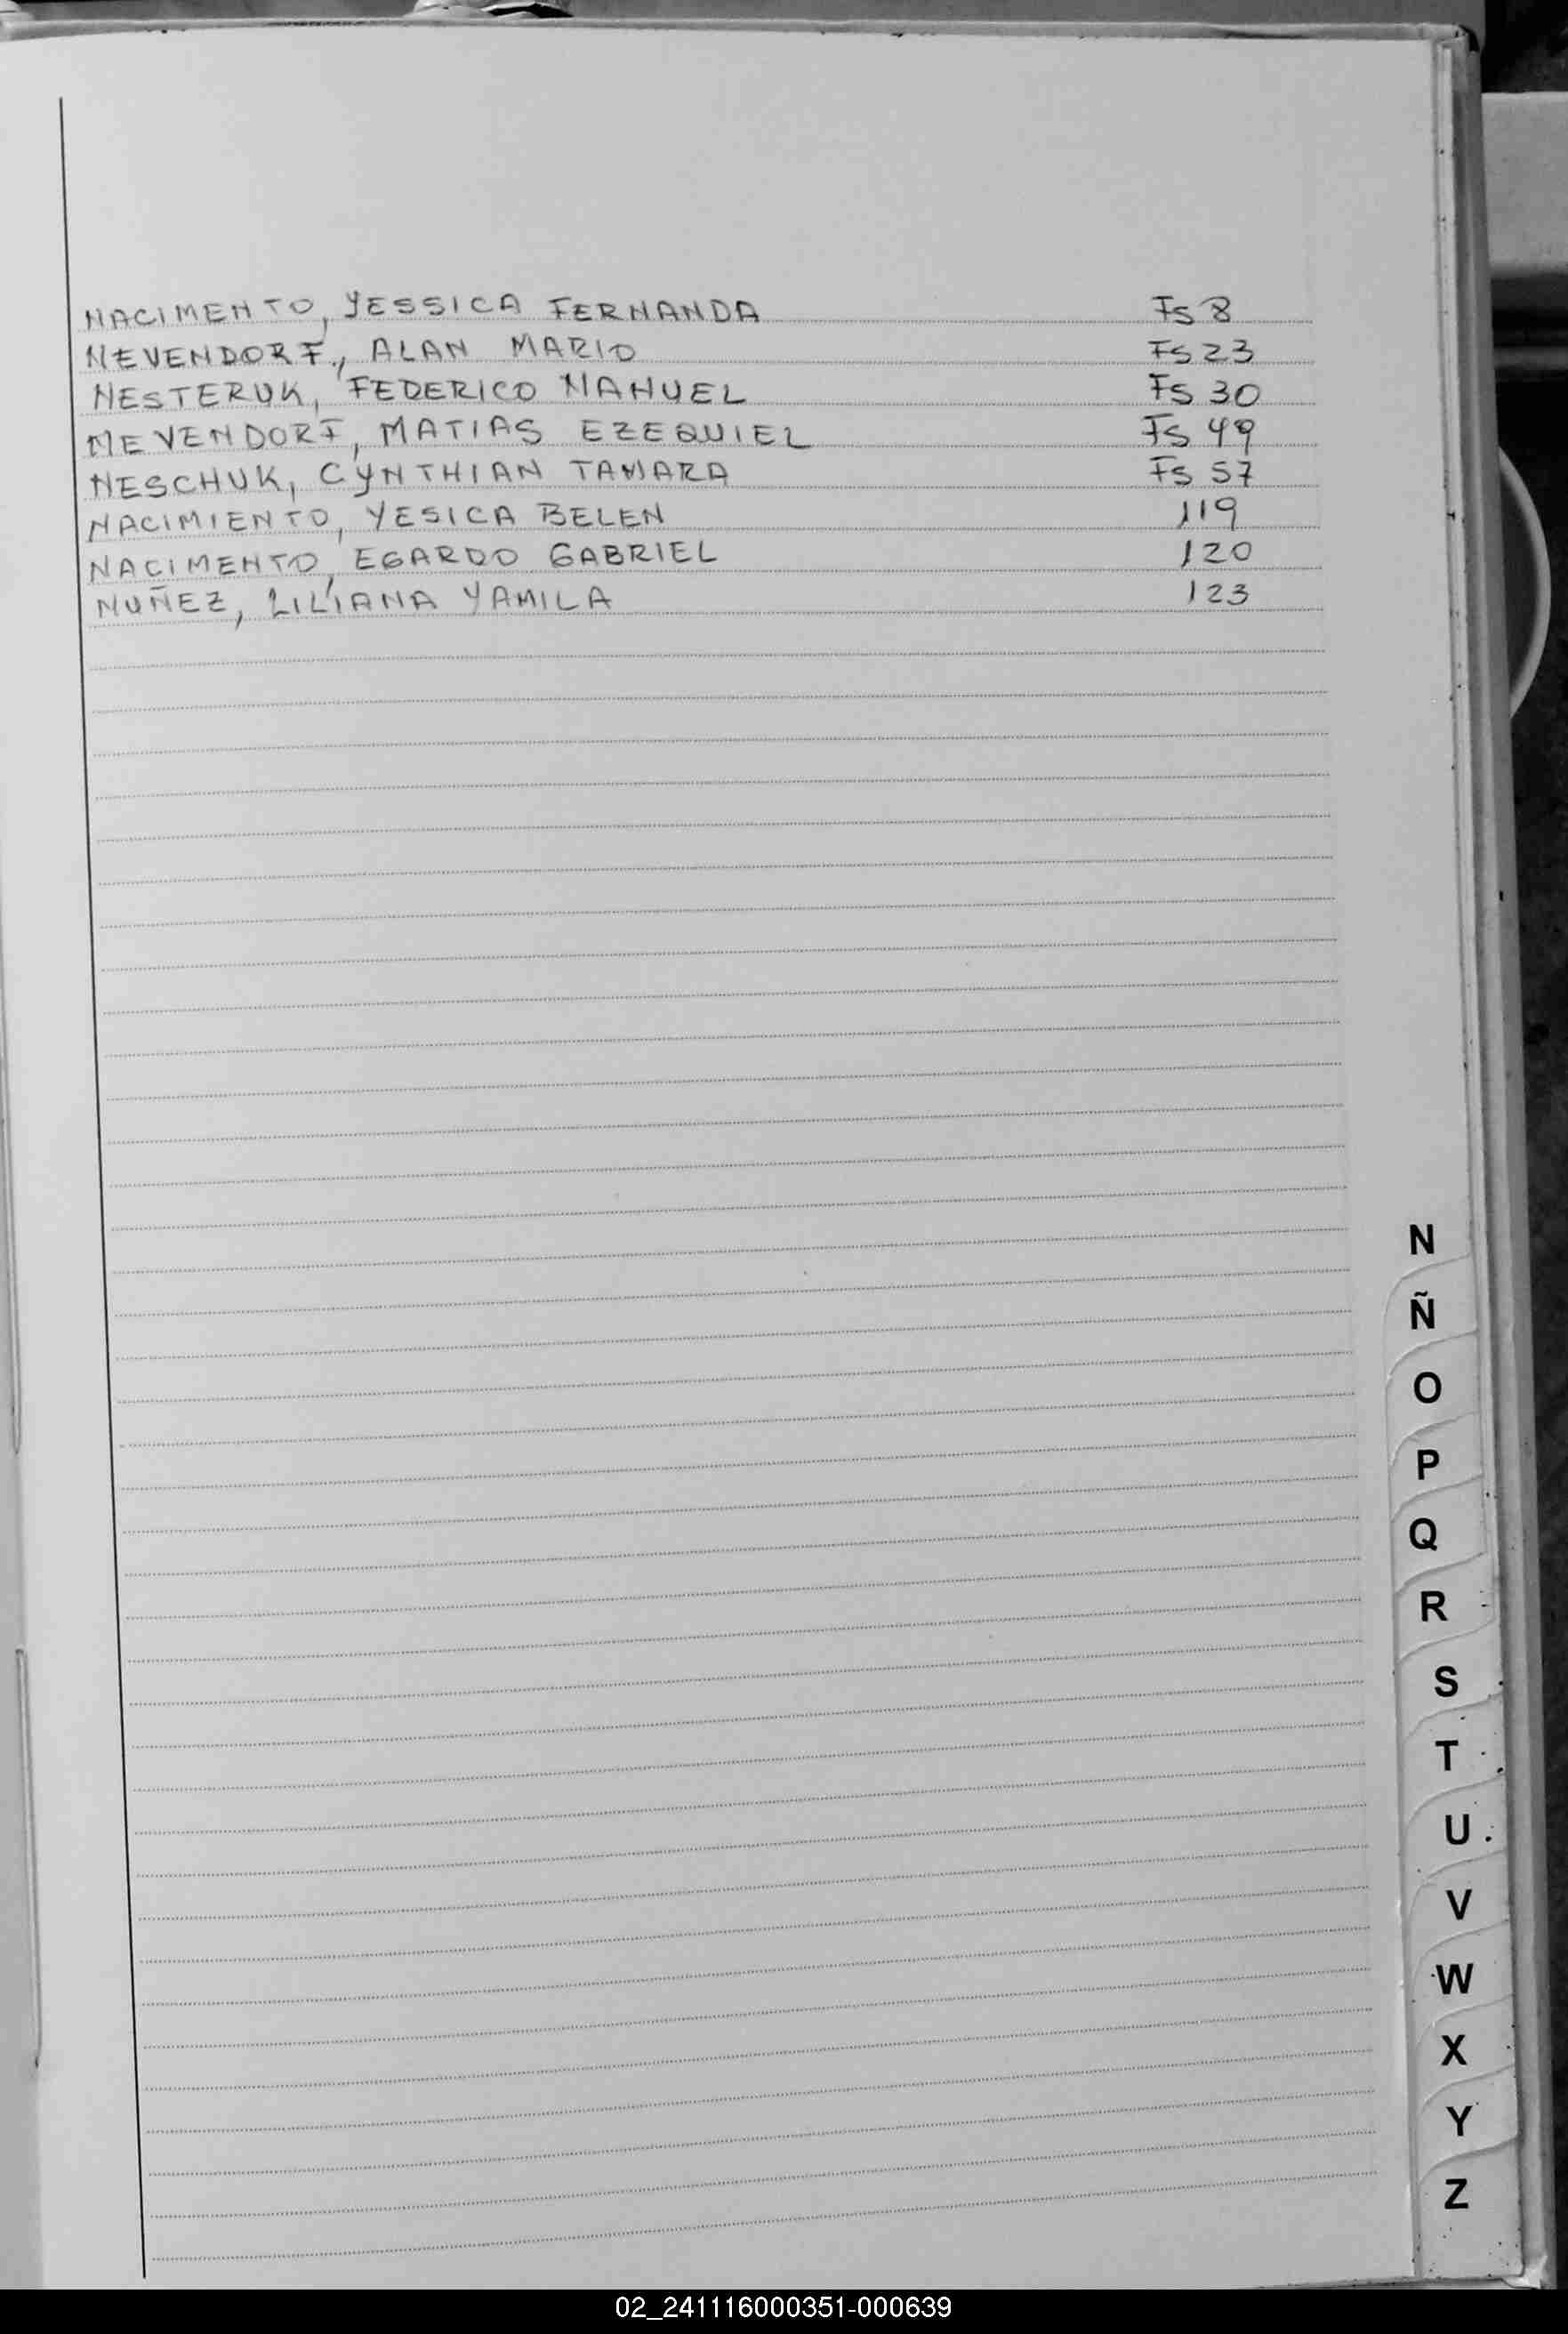 NACIMENTO, YESSICA FERNANDA Fs 8
NEVENDORF, ALAN MARIO Fs 23
NESTERUK, FEDERICO MANUEL Fs 30
NEVENDORF, MATIAS EZEQUIEL Fs 49
NESCHUK, CYNTHIAN TAMARA Fs 57
NACIMIENTO, YESICA BELEN 119
NACIMENTO, EGARDO GABRIEL 120
NUÑEZ, LILIANA YAMILA 123
N
Ñ
O
P
Q
R
S
T
U
V
W
X
Y
Z
02_241116000351-000639